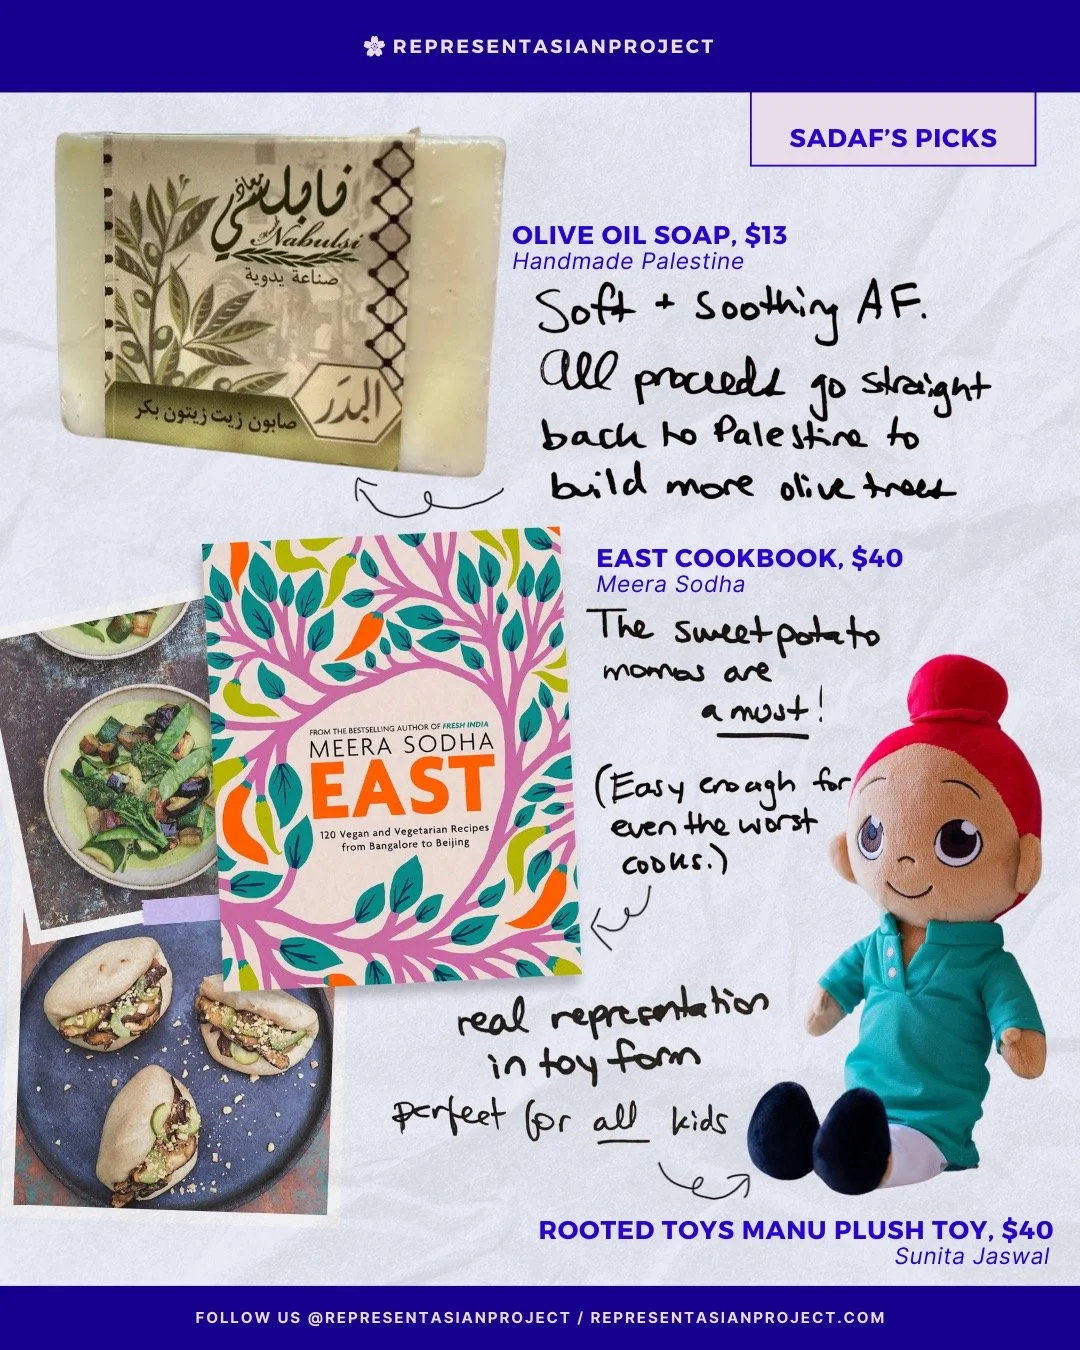 REPRESENTASIANPROJECT
SADAF'S PICKS
نابلسي
معاذ
Nabulsi
صناعة يدوية
البَدَر
صابون زيت زيتون بكر
OLIVE OIL SOAP, $13
Handmade Palestine
Soft + Soothing AF.
All proceeds go straight
back to Palestine to
build more olive trees
EAST COOKBOOK, $40
Meera Sodha
The sweet potato
momos are
a must!
(Easy enough for
even the worst
cooks.)
FROM THE BESTSELLING AUTHOR OF FRESH INDIA
MEERA SODHA
EAST
120 Vegan and Vegetarian Recipes
from Bangalore to Beijing
real representation
in toy form
perfect for all kids
ROOTED TOYS MANU PLUSH TOY, $40
Sunita Jaswal
FOLLOW US @REPRESENTASIANPROJECT / REPRESENTASIANPROJECT.COM